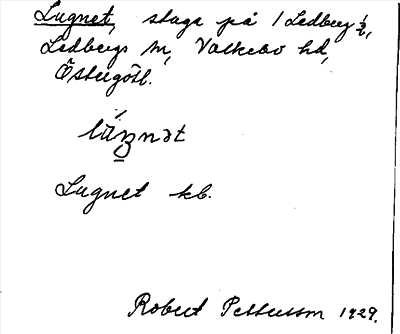 Lugnet, stuga på 1 Ledberg ½,
Ledbergs sn, Valkebo hd,
Östergötl.
Lugnet kb.
Robert Pettersson 1929.